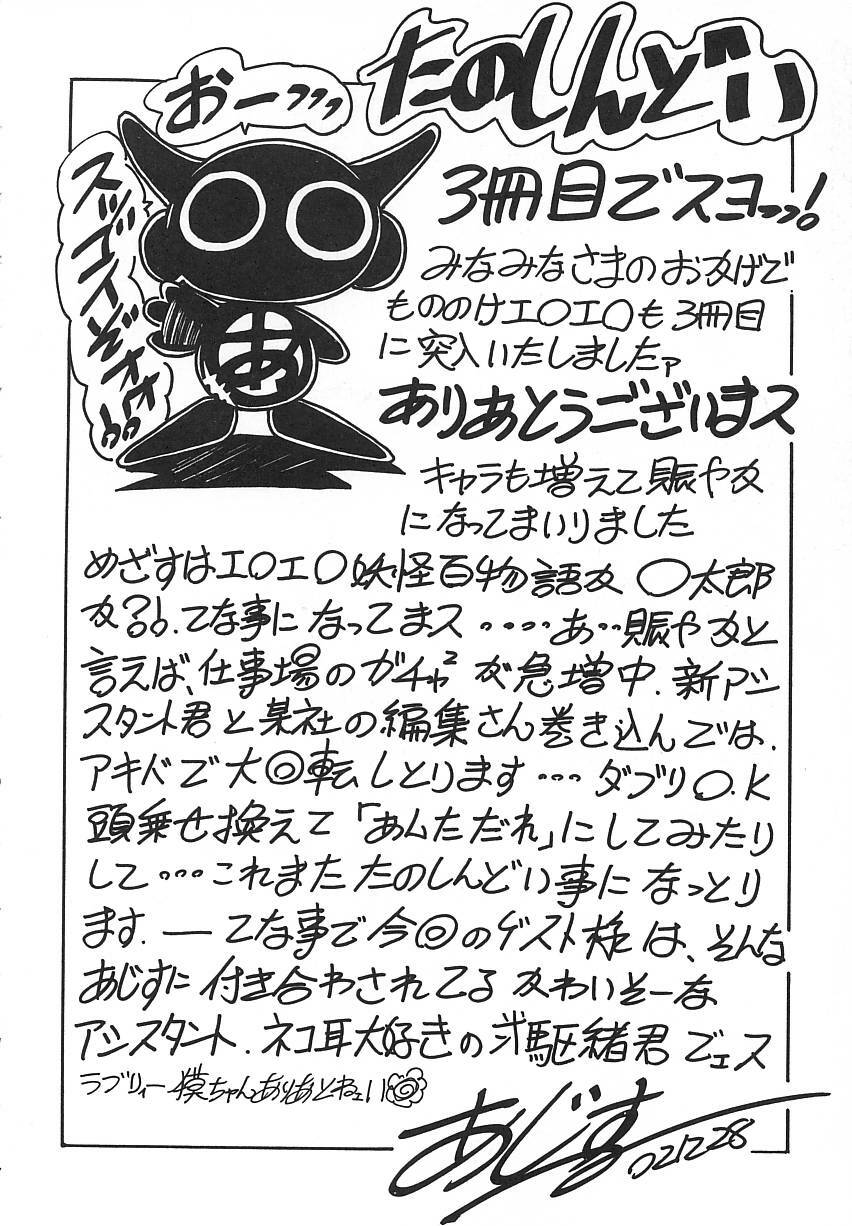 たのしんどい
おーっっっ
スッゲエイぞオオ!!
3冊目でスヨっっ!
みなみなさまのおかげで
もののけエ〇エ〇も3冊目
に突入いたしましたァ
ありあとうございまス
キャラも増えて賑やか
になってまいりました
めざすはエ〇エ〇妖怪百物語か 〇太郎
か?!.てな事になってまス‥‥あ‥賑やかと
言えば、仕事場のガチャ² が急増中.新アシ
スタント君と某社の編集さん巻き込んでは.
アキバで大◎転しとります…ダブりO.K
頭乗せ換えて「あんただれ」にしてみたり
して…これまたたのしんどい事になっとり
ます.―てな事で今◎のゲスト様は、そんな
あじすに付き合わされてる かわいそーな
アシスタント.ネコ耳大好きの 駆緒君でェス
ラブリィー漠ちゃんありあとねェい
あじす
02.12.28
あ